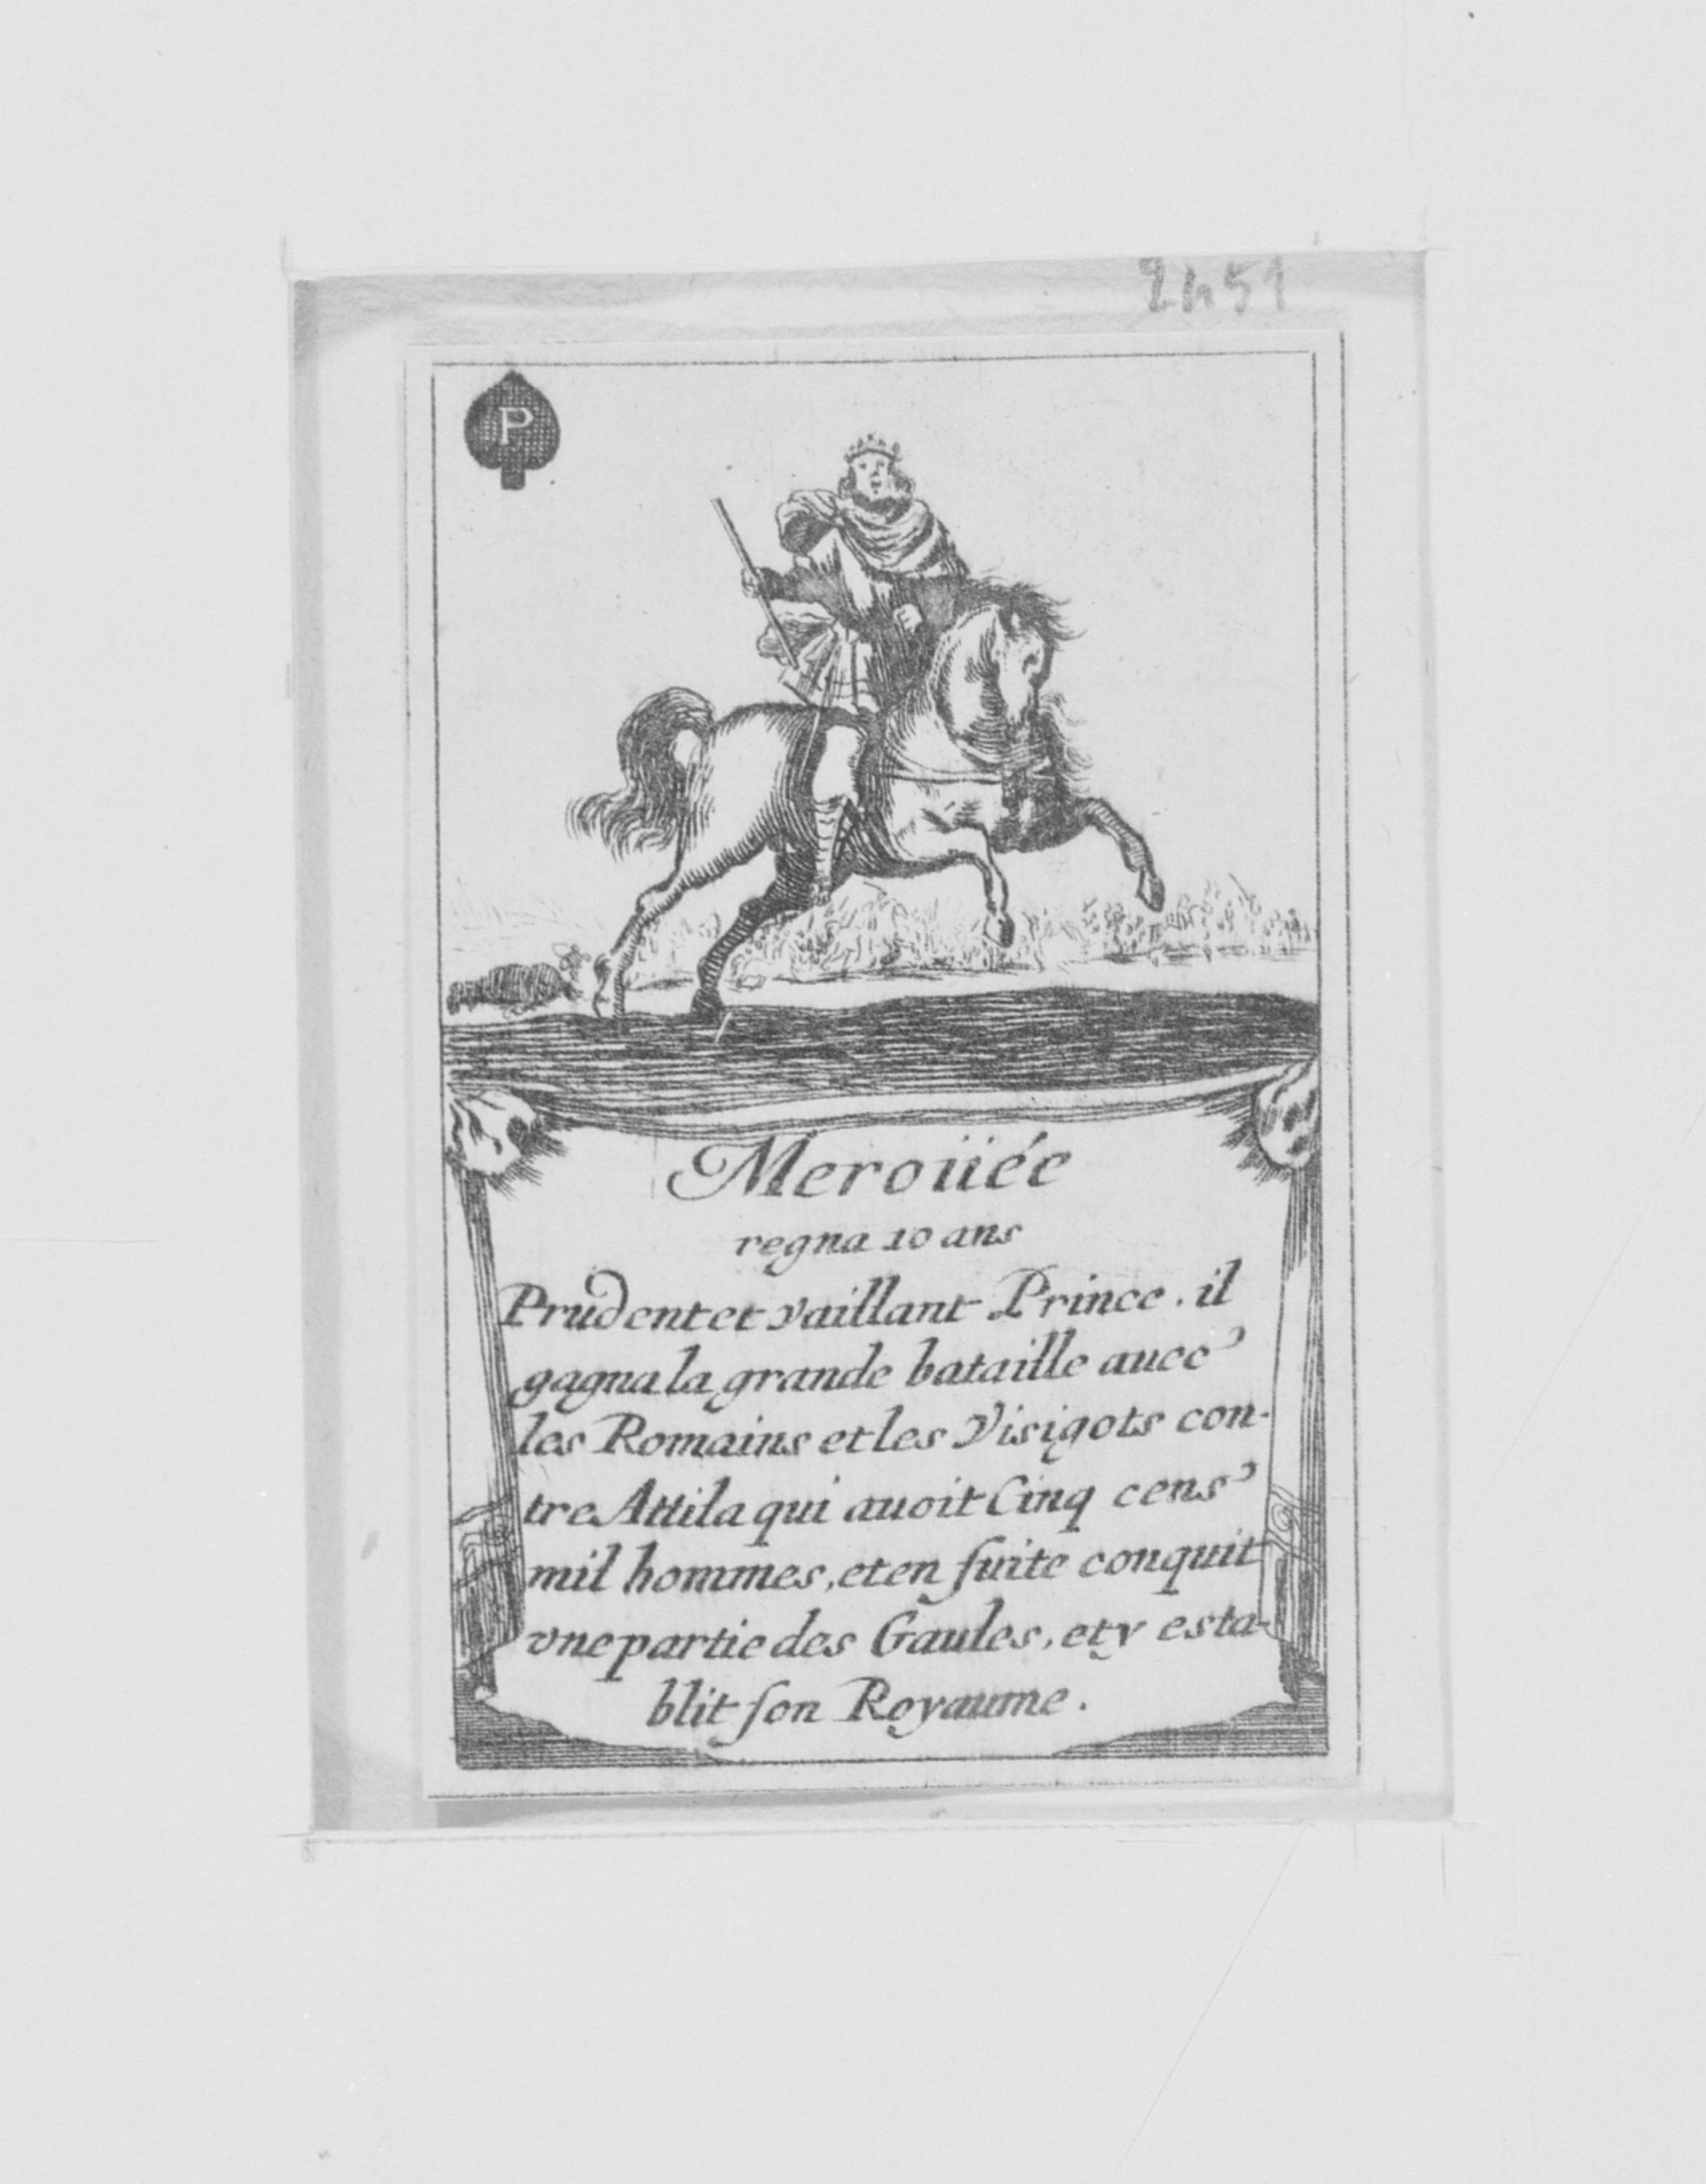 2451
P
Meroüée
regna 10 ans
Prudent et vaillant Prince. il
gagna la grande bataille auec
les Romains et les Visigots con-
tre Attila qui auoit Cinq cens
mil hommes, et en ſuite conquit
vne partie des Gaules, et y esta-
blit ſon Royaume.